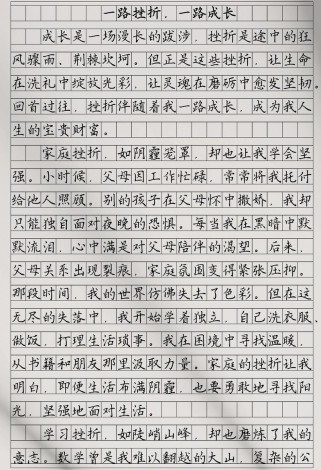 一路挫折，一路成长
成长是一场漫长的跋涉，挫折是途中的狂
风骤雨、荆棘坎坷。但正是这些挫折，让生命
在洗礼中绽放光彩，让灵魂在磨砺中愈发坚韧。
回首过往，挫折伴随着我一路成长，成为我人
生的宝贵财富。
家庭挫折，如阴霾笼罩，却也让我学会坚
强。小时候，父母因工作忙碌，常常将我托付
给他人照顾。别的孩子在父母怀中撒娇，我却
只能独自面对夜晚的恐惧。每当我在黑暗中默
默流泪，心中满是对父母陪伴的渴望。后来，
父母关系出现裂痕，家庭氛围变得紧张压抑。
那段时间，我的世界仿佛失去了色彩。但在这
无尽的失落中，我开始学着独立，自己洗衣服、
做饭，打理生活琐事。我在困境中寻找温暖，
从书籍和朋友那里汲取力量。家庭的挫折让我
明白，即便生活布满阴霾，也要勇敢地寻找阳
光，坚强地面对生活。
学习挫折，如陡峭山峰，却也磨炼了我的
意志。数学曾是我难以翻越的大山，复杂的公